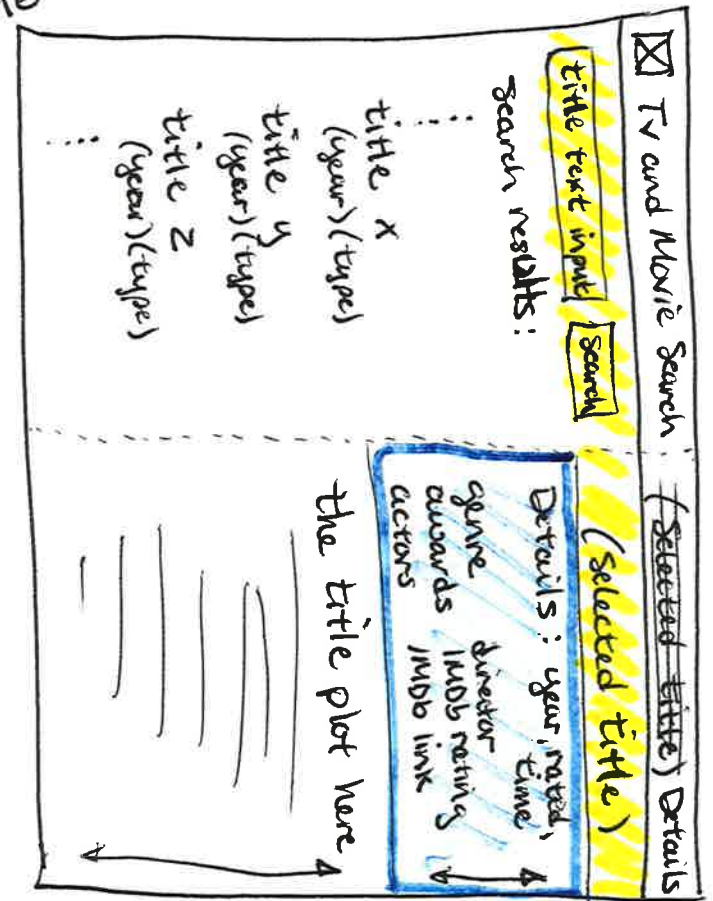 TV and Movie Search
(Selected title) Details
title text input
Search
(Selected title)
search results:
title x
(year)(type)
title y
(year)(type)
title z
(year)(type)
Details: year, rated,
time
genre
director
awards
IMDb rating
actors
IMDb link
the title plot here